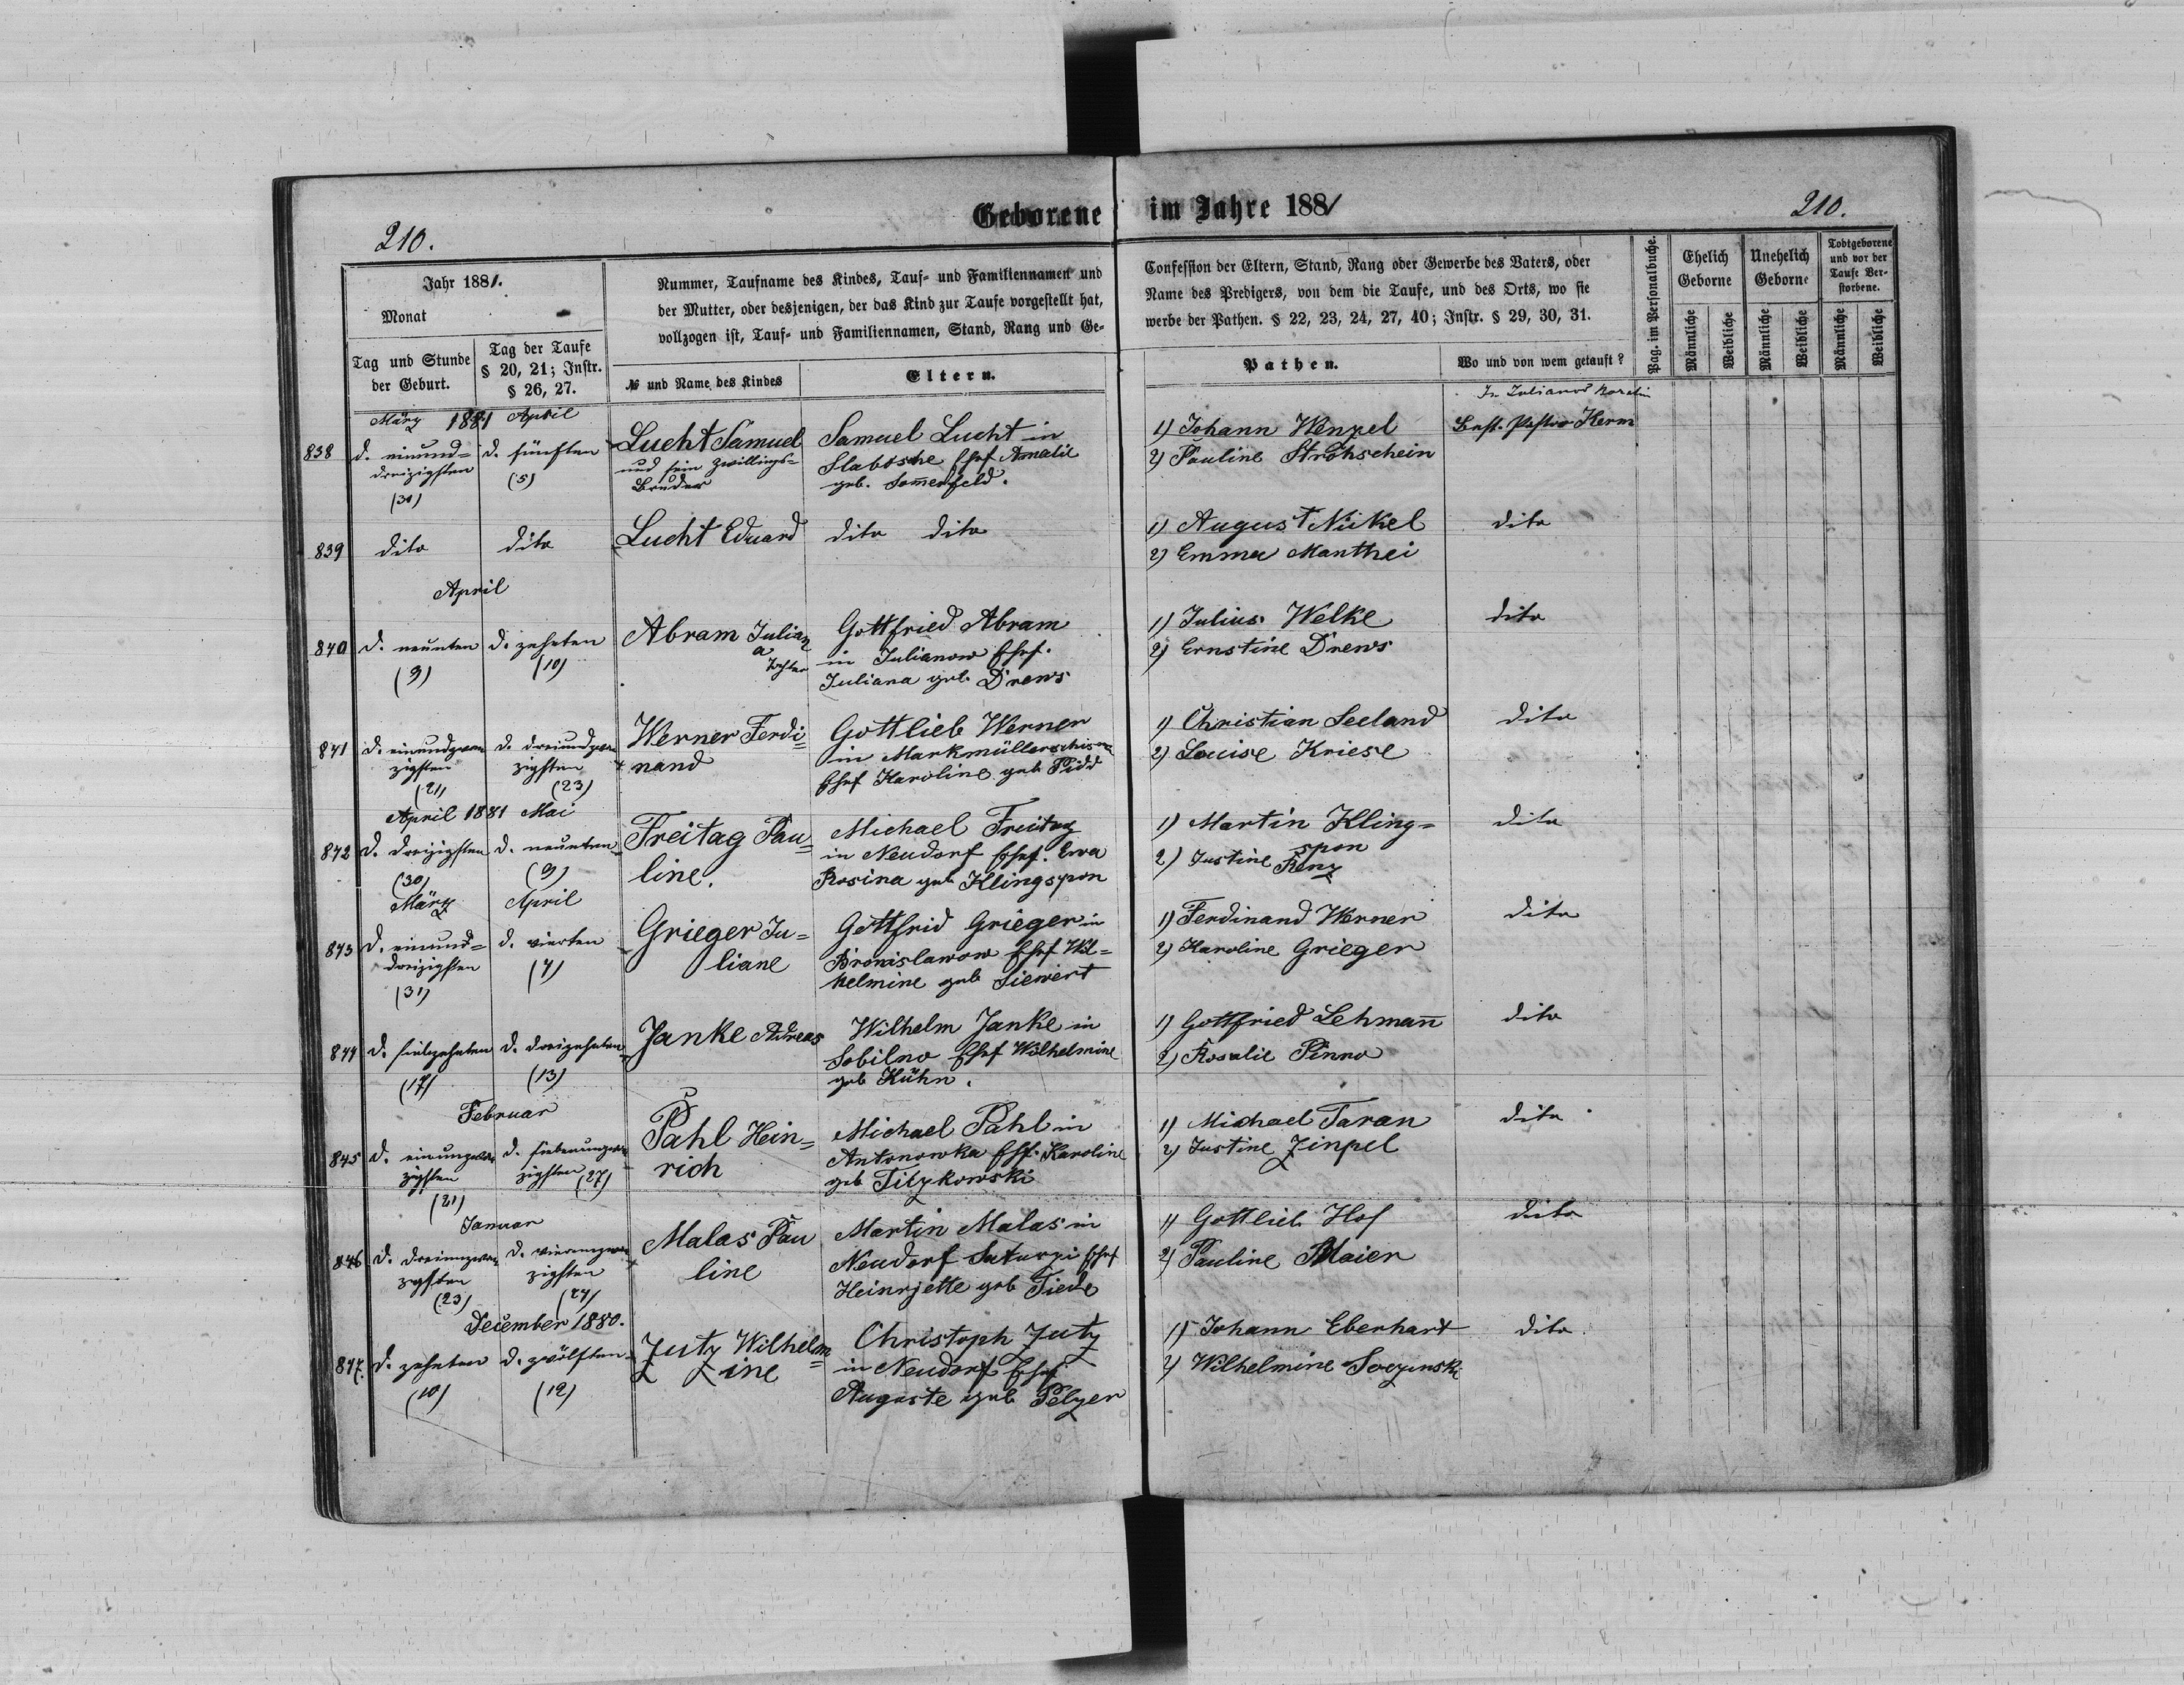 210.
Geborene im Jahre 1881
210.
Jahr 1881.
Monat
Tag und Stunde der Geburt.
Tag der Taufe § 20, 21; Instr. § 26, 27.
Nummer, Taufname des Kindes, Tauf- und Familiennamen und
der Mutter, oder desjenigen, der das Kind zur Taufe vorgestellt hat,
vollzogen ist, Tauf- und Familiennamen, Stand, Rang und Ge-
№ und Name des Kindes
Eltern.
Confession der Eltern, Stand, Rang oder Gewerbe des Vaters, oder
Name des Predigers, von dem die Taufe, und des Orts, wo sie
werbe der Pathen. § 22, 23, 24, 27, 40; Instr. § 29, 30, 31.
Pathen.
Wo und von wem getauft?
Pag. im Personalbuche.
Ehelich Geborne
Unehelich Geborne
Todtgeborene und vor der Taufe Verstorbene.
Männliche
Weibliche
Männliche
Weibliche
Männliche
Weibliche
März 1881 April
838
d. einund=
dreizigsten
(31)
d. fünften
(5)
Lucht Samuel
und sein Zwillings=
Bruder
Samuel Lucht in
Ehef Amalie
geb. Som̄erfeld.
1) Johann Wenzel
2) Pauline Strohschein
In Julianow
Past. Pastor Kerm
839
dito
dito
Lucht Eduard
dito dito
1) August Nickel
2) Emma Manthei
dito
April
840
d. neunten
(9)
d. zehnten
(10)
Abram Julian
a
Tochter
Gottfried Abram
in Julianow Ehef.
Juliana geb. Drews
1) Julius Welke
2) Ernstine Drews
dito
841
d. einundzwan
zigsten
(21)
d. dreiundzwan
zigsten
(23)
Werner Ferdi=
nand
Gottlieb Werner
in
Ehef Karoline geb
1) Christian Seeland
2) Louise Kriese
dito
April 1881 Mai
842
d. dreizigsten
(30)
d. neunten
(9)
Freitag Pau=
line.
Michael Freitag
in Neudorf Ehef. Ewa
Rosina geb Klingspon
1) Martin Kling=
spon
2) Justine Renz
dito
März
April
843
d. einund=
dreizigsten
(31)
d. vierten
(4)
Grieger Ju=
liane
Gottfrid Grieger in
Bronislawow Ehef Wil=
helmine geb Siewert
1) Ferdinand Werner
2) Karoline Grieger
dito
844
d. siebzehnten
(17)
d. dreizehnten
(13)
Janke Andreas
Wilhelm Janke in
Sobilno Ehef Wilhelmine
geb Kühn.
1) Gottfried Lehman̄
2) Rosalie Pinno
dito
Februar
845
d. einunzwan
zigsten
(21)
d. siebenunzwan
zigsten (27)
Pahl Hein=
rich
Michael Pahl in
Antonowka Ehf. Karoline
geb Titzkowski
1) Michael Taran
2) Justine Zinpel
dito
Januar
846
d. dreiunzwan
zigsten
(23)
d. vierunzwan
zigsten
(24)
Malas Pau
line
Martin Malas in
Neudorf Saturzi Ehef
Heinrjette geb Tiede
1) Gottlieb Hof
2) Pauline Maier
dito
December 1880.
847.
d. zehnten
(10)
d. zwölften
(12)
Zutz Wilhelm=
ine
Christoph Zutz
in Neudorf Ehef
Auguste geb Pelzer
1) Johann Eberhart
2) Wilhelmine
dito